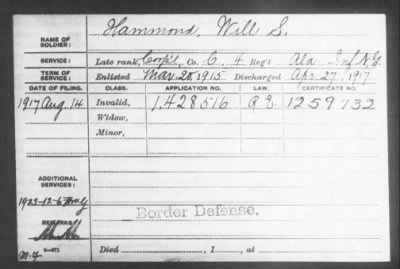 NAME OF SOLDIER: Hammond, Will S.
SERVICE: Late rank, Corp'l Co. C, 4 Reg't Ala Inf N.G.
TERM OF SERVICE: Enlisted Mar. 25, 1915 Discharged Apr. 27, 1917
DATE OF FILING. CLASS. APPLICATION NO. LAW. CERTIFICATE NO.
1917 Aug 14 Invalid, 1,428,516 1259732
Widow,
Minor,
ADDITIONAL SERVICES:
1923-12-6
REMARKS:
Border Defense.
Died , 1 , at